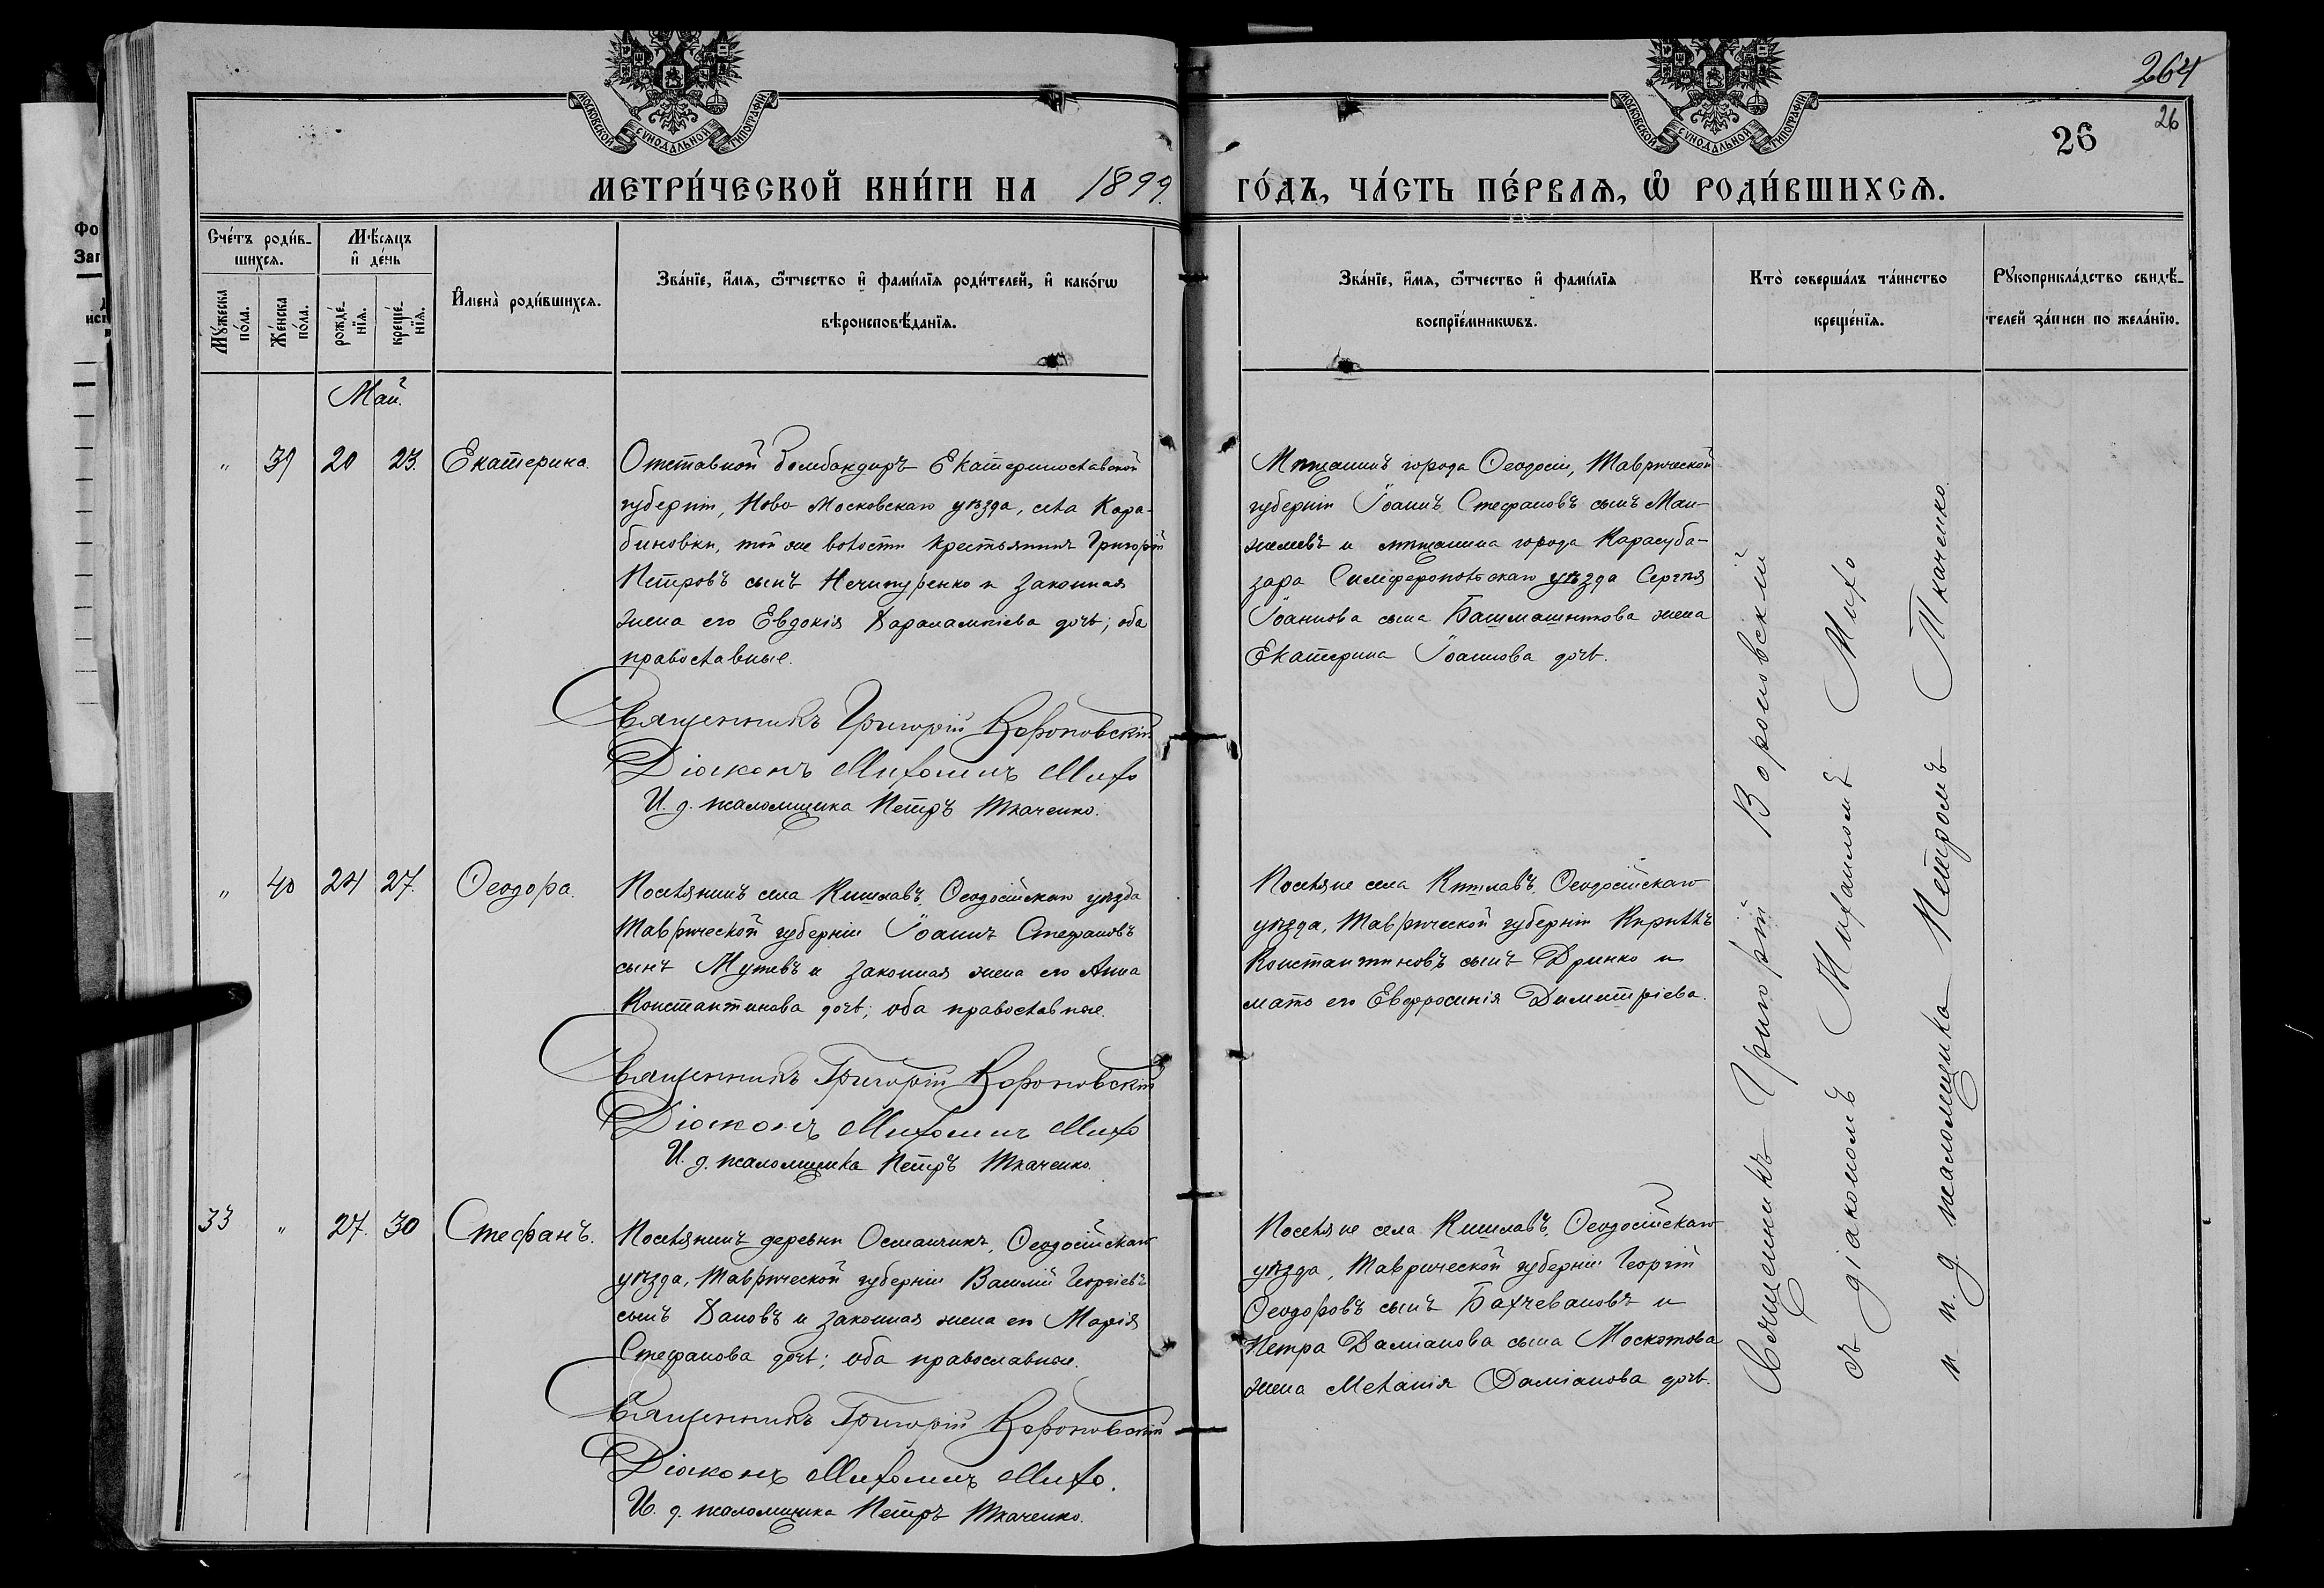 264
26
26
МОСКОВСКОЙ СѴНОДАЛЬНОЙ ТИПОГРАФІИ
МОСКОВСКОЙ СѴНОДАЛЬНОЙ ТИПОГРАФІИ
МЕТРИ́ЧЕСКОЙ КНИ́ГИ НА 1899 ГО́ДЪ, ЧА́СТЬ ПЕ́РВАѦ, Ѽ РОДИ́ВШИХСѦ.
Сче́тъ роди́в-
шихсѧ.
Мѣ́сѧцъ
и҆ де́нь
Мꙋ́жеска
по́ла.
Же́нска
по́ла.
рожде́-
нїѧ.
креще́-
нїѧ.
И҆мена̀ роди́вшихсѧ.
Зва́нїе, и҆́мѧ, ѻ҆́тчество и҆ фами́лїѧ роди́телей, и҆ како́гѡ
вѣроисповѣ́данїѧ.
Зва́нїе, и҆́мѧ, ѻ҆́тчество и҆ фами́лїѧ
воспрїе́мникѡвъ.
Кто̀ соверша́лъ та́инство
креще́нїѧ.
Рꙋкоприкла́дство свидѣ́-
телей за́писи по жела́нїю.
Май.
" 39 20 23. Екатерина.
Отставной бомбандиръ Екатеринославской
губерніи, Ново Московскаго уѣзда, села Кара-
биновки, той же волости крестьянинъ Григорій
Петровъ сынъ Нечипуренко и законная
жена его Евдокія Харалампіева дочь; оба
православные.
Священникъ Григорій Вороновскій
Діаконъ Михаилъ Михо
И. д. псаломщика Петръ Ткаченко.
Мѣщанинъ города Ѳеодосіи, Таврической
губерніи Іоаннъ Стефановъ сынъ Ман-
желевъ и мѣщанина города Карасуба-
зара Симферопольскаго уѣзда Сергѣя
Іоаннова сына Башмашникова жена
Екатерина Іоаннова дочь.
" 40 24 27. Ѳеодора.
Поселянинъ села Кишлавъ, Ѳеодосійскаго уѣзда
Таврической губерніи Іоаннъ Стефановъ
сынъ Мутевъ и законная жена его Анна
Константинова дочь; оба православные.
Священникъ Григорій Вороновскій
Діаконъ Михаилъ Михо
И. д. псаломщика Петръ Ткаченко.
Поселяне села Кишлавъ, Ѳеодосійскаго
уѣзда, Таврической губерніи Кириллъ
Константиновъ сынъ Дринко и
мать его Евфросинія Димитріева.
33 " 27. 30 Стефанъ.
Поселянинъ деревни Османчикъ, Ѳеодосійскаго
уѣзда, Таврической губерніи Василій Георгіевъ
сынъ Дановъ и законная жена его Марія
Стефанова дочь; оба православные.
Священникъ Григорій Вороновскій
Діаконъ Михаилъ Михо.
И. д. псаломщика Петръ Ткаченко.
Поселяне села Кишлавъ, Ѳеодосійскаго
уѣзда, Таврической губерніи Георгій
Ѳеодоровъ сынъ Бахчевановъ и
Петра Даміанова сына Москотова
жена Меланія Даміанова дочь.
Священникъ Григорій Вороновскій
съ діакономъ Михаиломъ Михо
и и. д. псаломщика Петромъ Ткаченко.